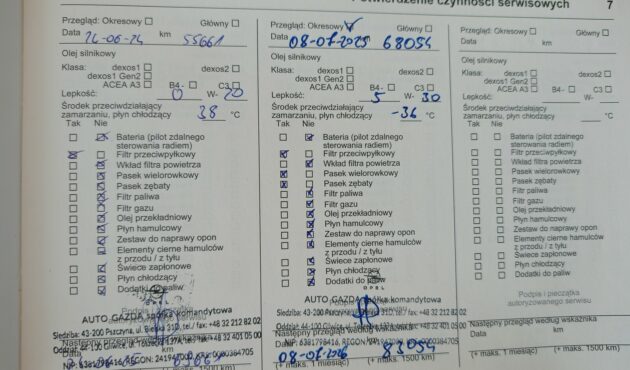 twierdzenie czynności serwisowych 7
Przegląd: Okresowy Główny
Data 26-06-24 km 55661
Olej silnikowy
Klasa: dexos1 dexos2
dexos1 Gen2
ACEA A3 B4- C3
Lepkość: 0 W- 20
Środek przeciwdziałający
zamarzaniu, płyn chłodzący 38 °C
Tak Nie
Bateria (pilot zdalnego
sterowania radiem)
Filtr przeciwpyłkowy
Wkład filtra powietrza
Pasek wielorowkowy
Pasek zębaty
Filtr paliwa
Filtr gazu
Olej przekładniowy
Płyn hamulcowy
Zestaw do naprawy opon
Elementy cierne hamulców
z przodu / z tyłu
Świece zapłonowe
Płyn chłodzący
Dodatki do paliw
OPEL
Podpis i
AUTO GAZDA spółka komandytowa
Siedziba: 43-200 Pszczyna, ul. Bielska 31D, tel./ fax: +48 32 212 82 02
Oddział: 44-100 Gliwice, ul.
Następny przegląd według wskazań
Data km
(+ maks. 1 miesiąc) (+ maks. 1500 km)
Przegląd: Okresowy Główny
Data 08-07-2025 km 68054
Olej silnikowy
Klasa: dexos1 dexos2
dexos1 Gen2
ACEA A3 B4- C3
Lepkość: 5 W- 30
Środek przeciwdziałający
zamarzaniu, płyn chłodzący -36 °C
Tak Nie
Bateria (pilot zdalnego
sterowania radiem)
Filtr przeciwpyłkowy
Wkład filtra powietrza
Pasek wielorowkowy
Pasek zębaty
Filtr paliwa
Filtr gazu
Olej przekładniowy
Płyn hamulcowy
Zestaw do naprawy opon
Elementy cierne hamulców
z przodu / z tyłu
Świece zapłonowe
Płyn chłodzący
Dodatki do paliw
OPEL
AUTO GAZDA spółka komandytowa
Siedziba: 43-200 Pszczyna, ul. Bielska 31D, tel./ fax: +48 32 212 82 02
Oddział: 44-100 Gliwice, ul.
Następny przegląd według wskazań
Data 08-07-2026 km 83054
(+ maks. 1 miesiąc) (+ maks. 1500 km)
Przegląd: Okresowy Główny
Data km
Olej silnikowy
Klasa: dexos1 dexos2
dexos1 Gen2
ACEA A3 B4- C3
Lepkość: W-
Środek przeciwdziałający
zamarzaniu, płyn chłodzący °C
Tak Nie
Bateria (pilot zdalnego
sterowania radiem)
Filtr przeciwpyłkowy
Wkład filtra powietrza
Pasek wielorowkowy
Pasek zębaty
Filtr paliwa
Filtr gazu
Olej przekładniowy
Płyn hamulcowy
Zestaw do naprawy opon
Elementy cierne hamulców
z przodu / z tyłu
Świece zapłonowe
Płyn chłodzący
Dodatki do paliw
Podpis i pieczątka
autoryzowanego serwisu
Następny przegląd według wskazań
Data km
(+ maks. 1 miesiąc) (+ maks. 1500 km)